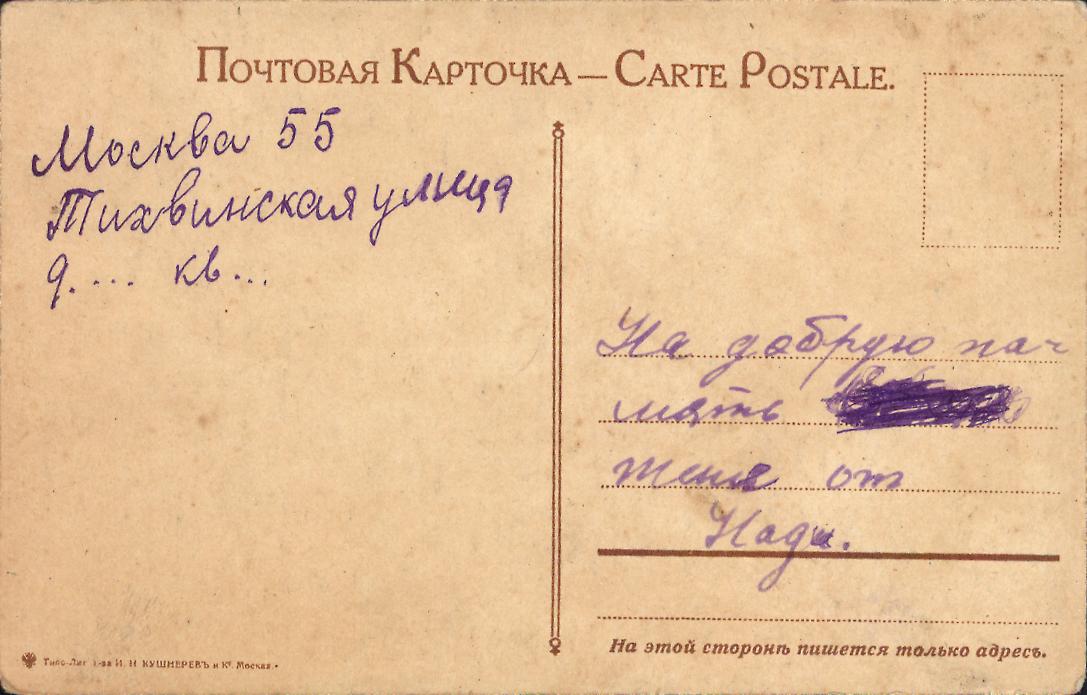 Почтовая Карточка — Carte Postale.
Москва 55
Тихвинская улица
д.... кв...
На добрую па-
мять
женя от
Нади.
На этой сторонѣ пишется только адресъ.
Типо-Лит. Т-ва И. Н. КУШНЕРЕВЪ и Кº. Москва.